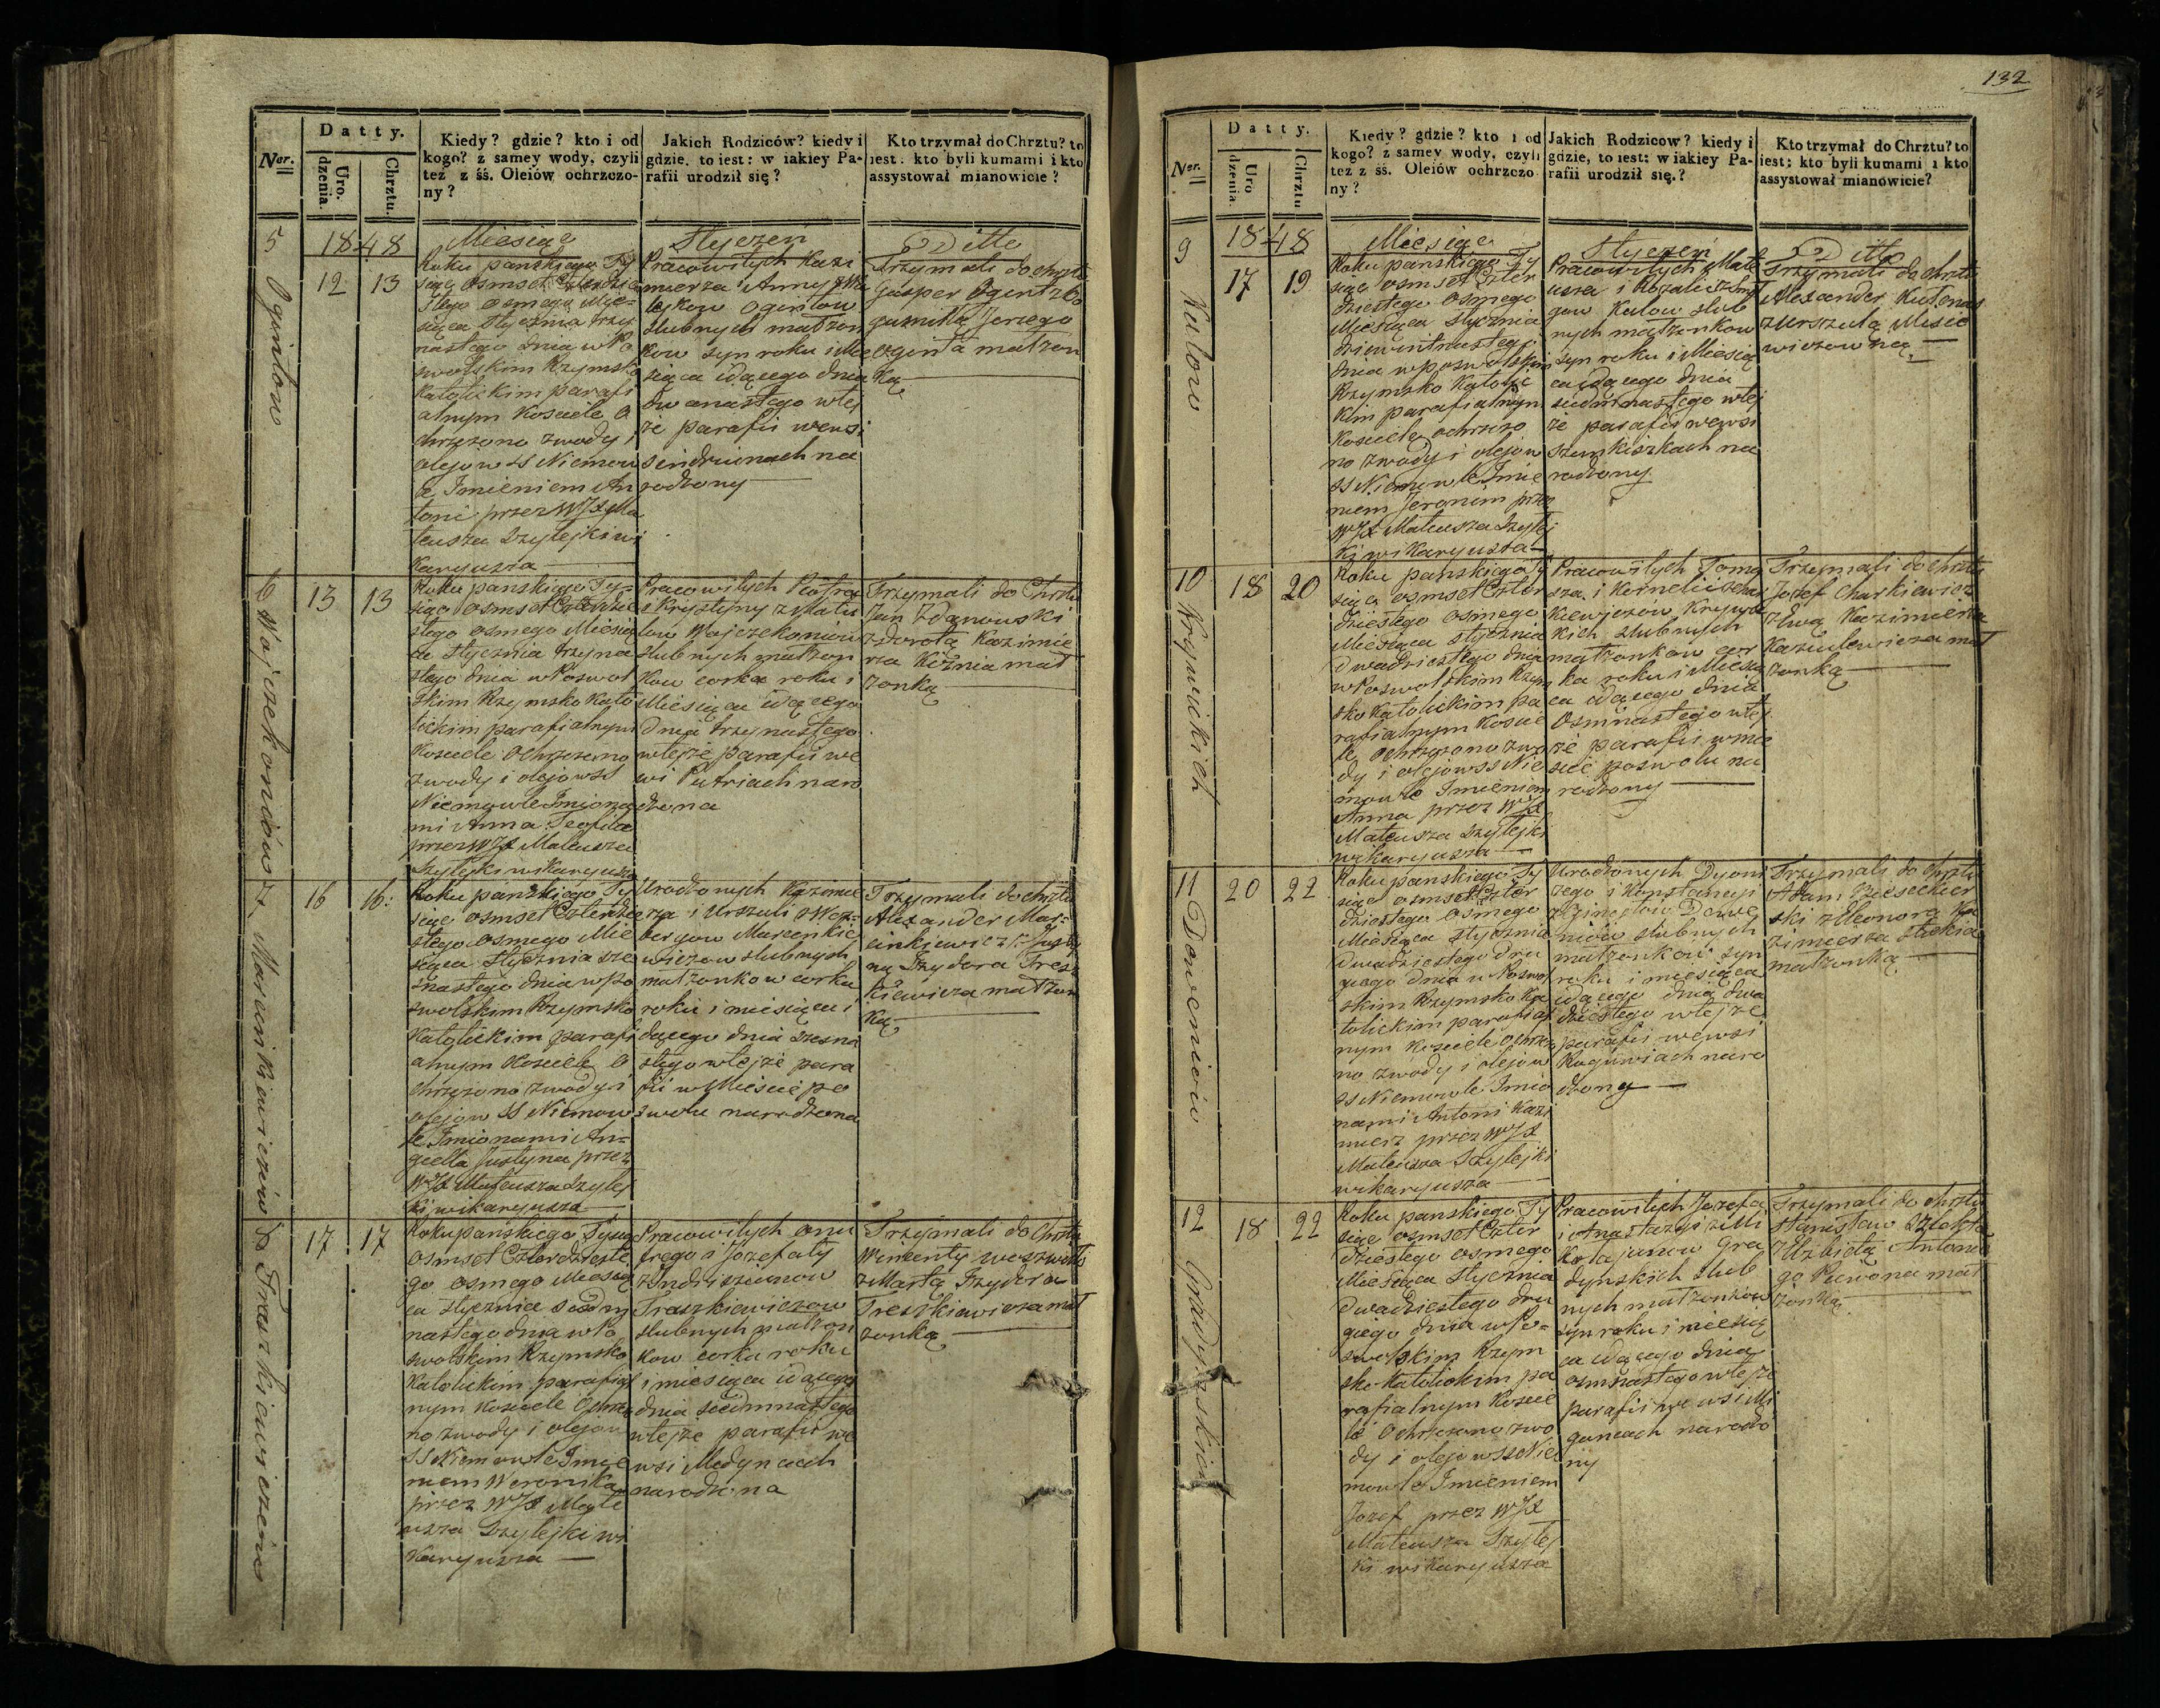 Datty.
Ner.
Uro-
dzenia.
Chrztu.
Kiedy? gdzie? kto i od
kogo? z samey wody, czyli
też z śś. Oleiów ochrzczo-
ny?
Jakich Rodziców? kiedy i
gdzie, to iest: w iakiey Pa-
rafii urodził się?
Kto trzymał do Chrztu? to
iest: kto byli kumami i kto
assystował mianowicie?
1848
Miesiąc
Styczeń
Ditto
5
Ogintow
12
13
Roku pańskiego Ty
siąc osmset Czterdzie
stego osmego Mie-
siąca Stycznia trzy
nastego dnia w Po
swolskim Rzymsko
Katolickim parafi
alnym Kosciele o
chrzczono z wody i
olejow SS Niemow
le Imieniem An
toni przez WJX Ma
teusza Szylejki wi
karyusza
Pracowitych Kazi
mierza i Anny
Ogintow
slubnych małżon
kow syn roku i Mie
siąca idącego dnia
dwanastego w tej
że parafii we wsi
na
rodzony
Trzymali do chrztu
Gasper Ogint z Bo
gumiłą Jerzego
Oginta małżon
ką
6
Wojczekoniow
13
13
Roku pańskiego Ty-
siąc osmset Czterdzie
stego osmego Miesią
ca Stycznia trzyna
stego dnia w Poswol
skim Rzymsko Kato
lickim parafialnym
Kosciele Ochrzczono
z wody i olejow SS
Niemowle Imiona
mi Anna Teofila
przez WJX Mateusza
Szylejki wikaryusza
Pracowitych Piotra
i Krystyny z Matu
low Wojczekoniow
slubnych małżon
kow corka roku i
Miesiąca idącego
dnia trzynastego
w tejże parafii we
wsi Putriach naro
dzona
Trzymali do Chrztu
Jan Zdanowski
z Dorotą Kazimie
rza Kiżnia mał
żonką
7
Marcinkiewiczow
16
16
Roku pańskiego Ty
siąc osmset Czterdzie
stego osmego Mie
siąca Stycznia sze
snastego dnia w Po
swolskim Rzymsko
Katolickim parafi
alnym Kosciele O
chrzczono z wody i
olejow SS Niemow
le Imionami An-
giella Justyna przez
WJX Mateusza Szylej
ki wikaryusza
Urodzonych Kazimie
rza i Urszuli z Wez-
bergow Marcinkie
wiczow slubnych
małżonkow corka
roku i miesiąca i
dącego dnia szesna
stego w tejże para
fii w Miescie Po
swolu narodzona
Trzymali do chrztu
Alexander Mar-
cinkiewicz z Justy
ną Izydora Tresz
kiewicza małżon
ką
8
Traszkiewiczow
17
17
Roku pańskiego Tysiąc
osmset Czterdzieste
go osmego Miesią
ca Stycznia siedm
nastego dnia w Po
swolskim Rzymsko
Katolickim parafial
nym Kosciele Ochrzczo
no z wody i olejow
SS Niemowle Imie
niem Weronika
przez WJX Mate
usza Szylejki wi
karyusza
Pracowitych Onu
frego i Jozefaty
z Indriszunow
Traszkiewiczow
slubnych małżon
kow corka roku
i miesiąca idącego
dnia siedmnastego
w tejże parafii we
wsi Medynach
narodzona
Trzymali do Chrztu
Wincenty
z Martą Izydora
Treszkiewicza mał
żonką
132
Datty.
Ner.
Uro
dzenia.
Chrztu
Kiedy? gdzie? kto i od
kogo? z samey wody, czyli
też z śś. Oleiów ochrzczo
ny?
Jakich Rodziców? kiedy i
gdzie, to iest: w iakiey Pa-
rafii urodził się.?
Kto trzymał do Chrztu? to
iest; kto byli kumami i kto
assystował mianowicie?
1848
Miesiąc
Styczeń
Ditto
9
Kutow
17
19
Roku pańskiego Ty
siąc osmset Czter
dziestego osmego
Miesiąca Stycznia
dziewiętnastego
dnia w Poswolskim
Rzymsko Katolic
kim parafialnym
Kosciele ochrzczo
no z wody i olejow
SS Niemowle Imie
niem Jeronim przez
WJX Mateusza Szylej
ki wikaryusza
Pracowitych Mate
usza i Rozalii
gow Kutow slub
nych małżonkow
syn roku i Miesią
ca idącego dnia
siedmnastego w tej
że parafii we wsi
Szumkiszkach na
rodzony
Trzymali do chrztu
Alexander Kutonas
z Urszulą Misie
wiczowną
10
Krzywickich
18
20
Roku pańskiego Ty
siąc osmset Czter
dziestego osmego
Miesiąca Stycznia
Dwadziestego dnia
w Poswolskim Rzym
sko Katolickim pa
rafialnym Koscie
le Ochrzczono z wo
dy i olejow SS Nie
mowle Imieniem
Anna przez WJX
Mateusza Szylejki
wikaryusza
Pracowitych Toma
sza i Kornelii z Char
kiewiczow Krzywic
kich slubnych
małżonkow cor
ka roku i Miesią
ca idącego dnia
Osmnastego w tej
że parafii w mie
scie Poswolu na
rodzony
Trzymali do chrztu
Jozef Charkiewicz
z Ewą Kazimierza
Kaziulewicza mał
żonką
11
Dowcniow
20
22
Roku pańskiego Ty
siąc osmset Czter
dziestego osmego
Miesiąca Stycznia
Dwadziestego dru
giego dnia w Poswol
skim Rzymsko Ka
tolickim parafial
nym Kosciele ochrzczo
no z wody i olejow
SS Niemowle Imio
nami Antoni Kazi
mierz przez WJX
Mateusza Szylejki
wikaryusza
Urodzonych Dyoni
zego i Konstancyi
niow slubnych
małżonkow syn
roku i miesiąca
idącego dnia dwa
dziestego w tejże
parafii we wsi
naro
dzony
Trzymali do chrztu
Adam
ski z Eleonorą Ka
zimierza
małżonką
12
Gradynskich
18
22
Roku pańskiego Ty
siąc osmset Czter
dziestego osmego
Miesiąca Stycznia
Dwadziestego dru
giego dnia w Po-
swolskim Rzym
sko-Katolickim pa
rafialnym Koscie
le Ochrzczono z wo
dy i olejow SS Nie
mowle Imieniem
Jozef przez WJX
Mateusza Szylej
ki wikaryusza
Pracowitych Jozefa
i Anastazyi z Mi
kołajunow Gra
dynskich slub
nych małżonkow
syn roku i miesią
ca idącego dnia
osmnastego w tejże
parafii we wsi Mi
goncach narodzo
ny
Trzymali do chrztu
Stanisław
z Elżbietą Antonie
go Puwona mał
żonką